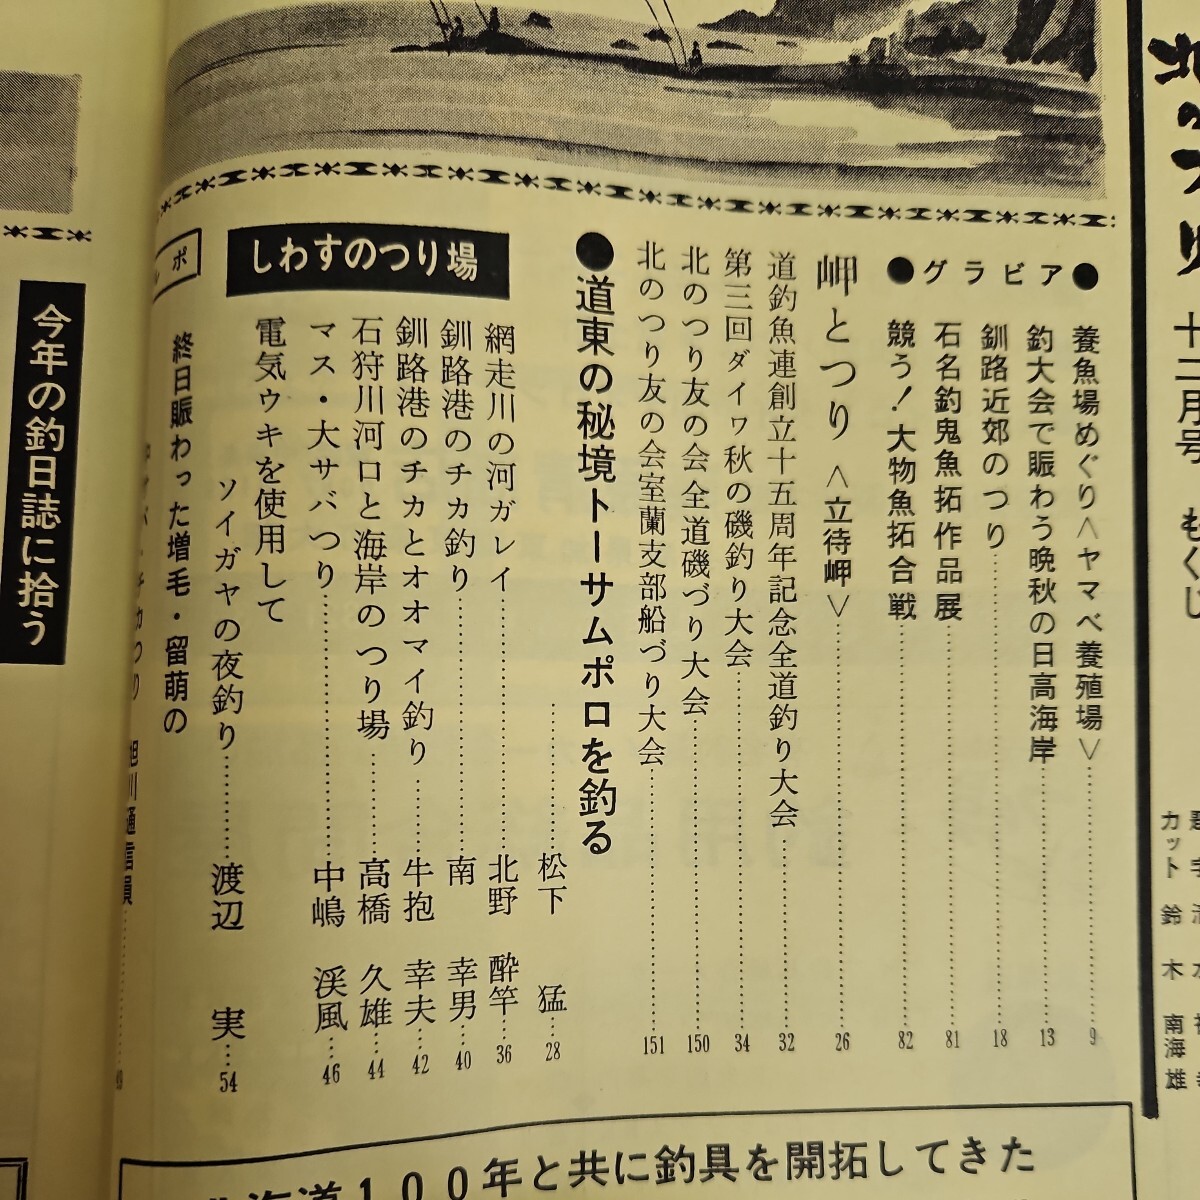 北のつり 十二月号 もくじ
カット 鈴木南海雄
●グラビア●
養魚場めぐり〈ヤマベ養殖場〉……9
釣大会で賑わう晩秋の日高海岸……13
釧路近郊のつり……18
石名釣鬼魚拓作品展……81
競う!大物魚拓合戦……82
岬とつり〈立待岬〉……26
道釣魚連創立十五周年記念全道釣り大会……32
第三回ダイワ秋の磯釣り大会……34
北のつり友の会全道磯づり大会……150
北のつり友の会室蘭支部船づり大会……151
●道東の秘境トーサムポロを釣る
……松下 猛……28
しわすのつり場
網走川の河ガレイ……北野 酔竿……36
釧路港のチカ釣り……南 幸男……40
釧路港のチカとオオマイ釣り……牛抱 幸夫……42
石狩川河口と海岸のつり場……高橋 久雄……44
マス・大サバつり……中嶋 渓風……46
電気ウキを使用して
ソイガヤの夜釣り……渡辺 実……54
ルポ
終日賑わった増毛・留萌の
チカつり 旭川通信員……
今年の釣日誌に拾う
北海道100年と共に釣具を開拓してきた